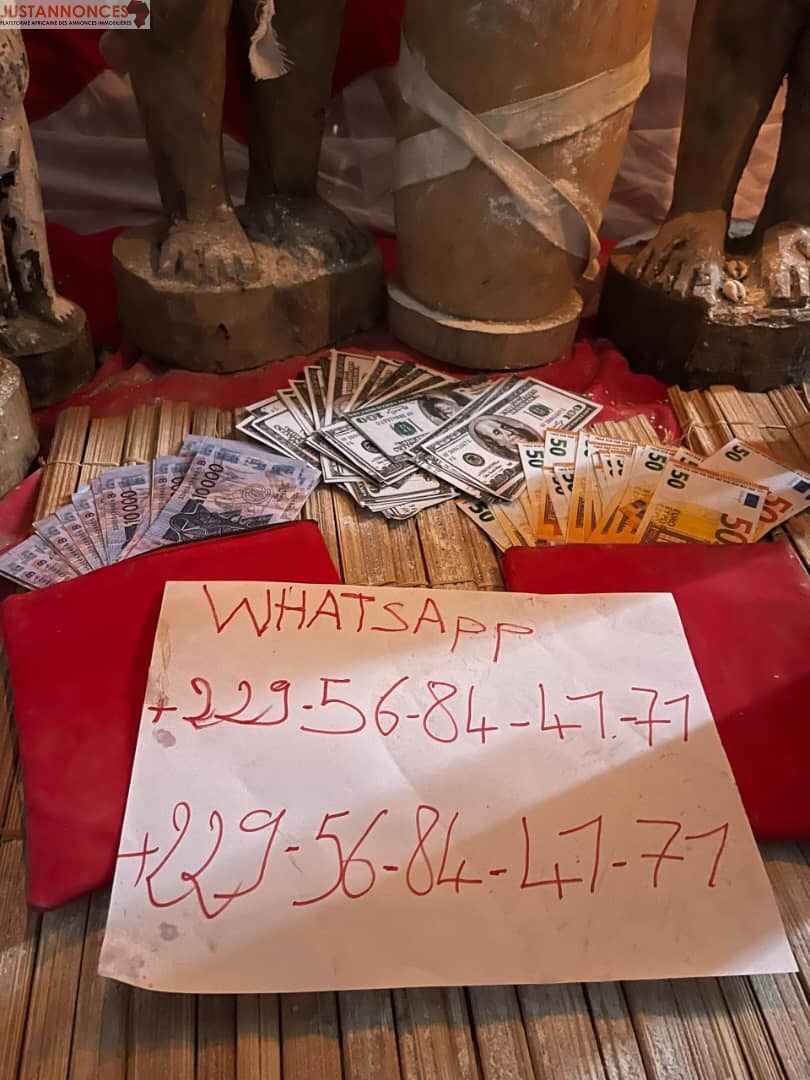 JUSTANNONCES
PLATEFORME AFRICAINE DES ANNONCES IMMOBILIÈRES
10000
10000
100
50
50
50
50
50
50
EURO
WHATSAPP
+229-56-84-41-71
+229-56-84-41-71